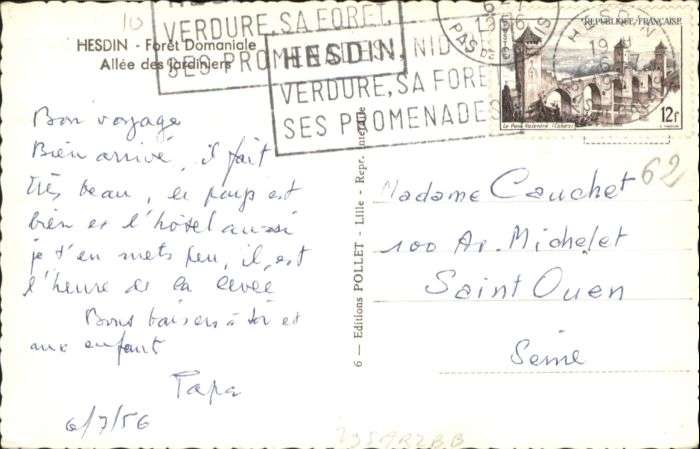 10
HESDIN - Forêt Domaniale
Allée des Jardiniers
VERDURE, SA FORET,
SES PROMENADES
HESDIN, NID
VERDURE, SA FORE
SES PROMENADES
PAS DE
HESDIN
19
6
REPUBLIQUE FRANÇAISE
Le Pont Valentré (Cahors)
12F
Bon voyage
Bien arrivé, il fait
très beau, le pays est
bien et l'hôtel aussi
je t'en mets peu, il est
l'heure de la levée
Bons baisers à toi et
aux enfant
Papa
6/7/56
6 — Editions POLLET - Lille - Repr. interdite
Madame Cauchet
62
100 Av. Michelet
Saint Ouen
Seine